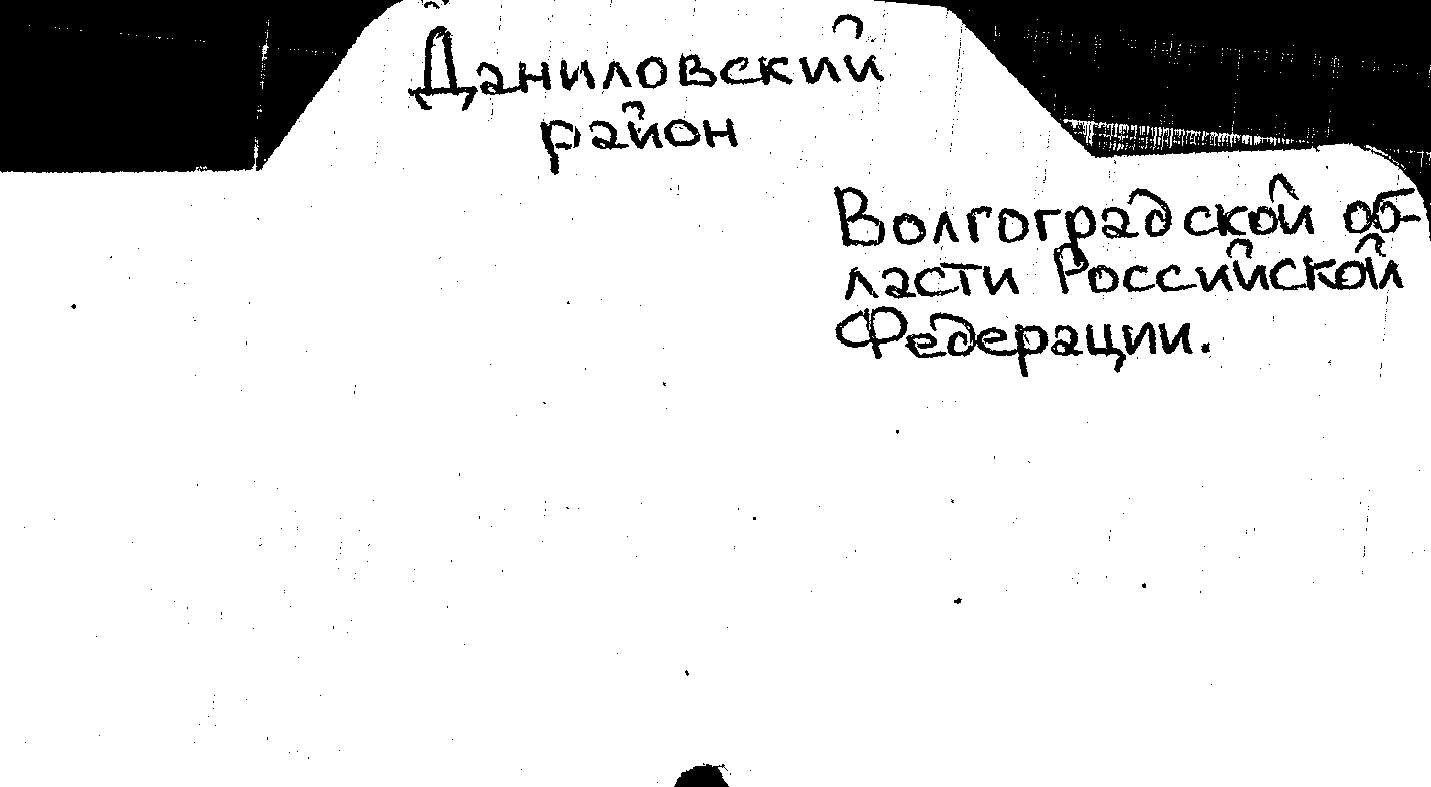 Даниловский
район
Волгоградской об-
ласти Российской
Федерации.